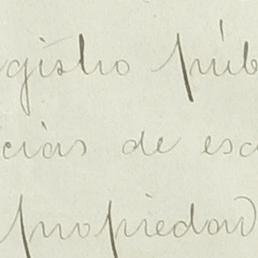 gistro púb
cias de es
propiedad